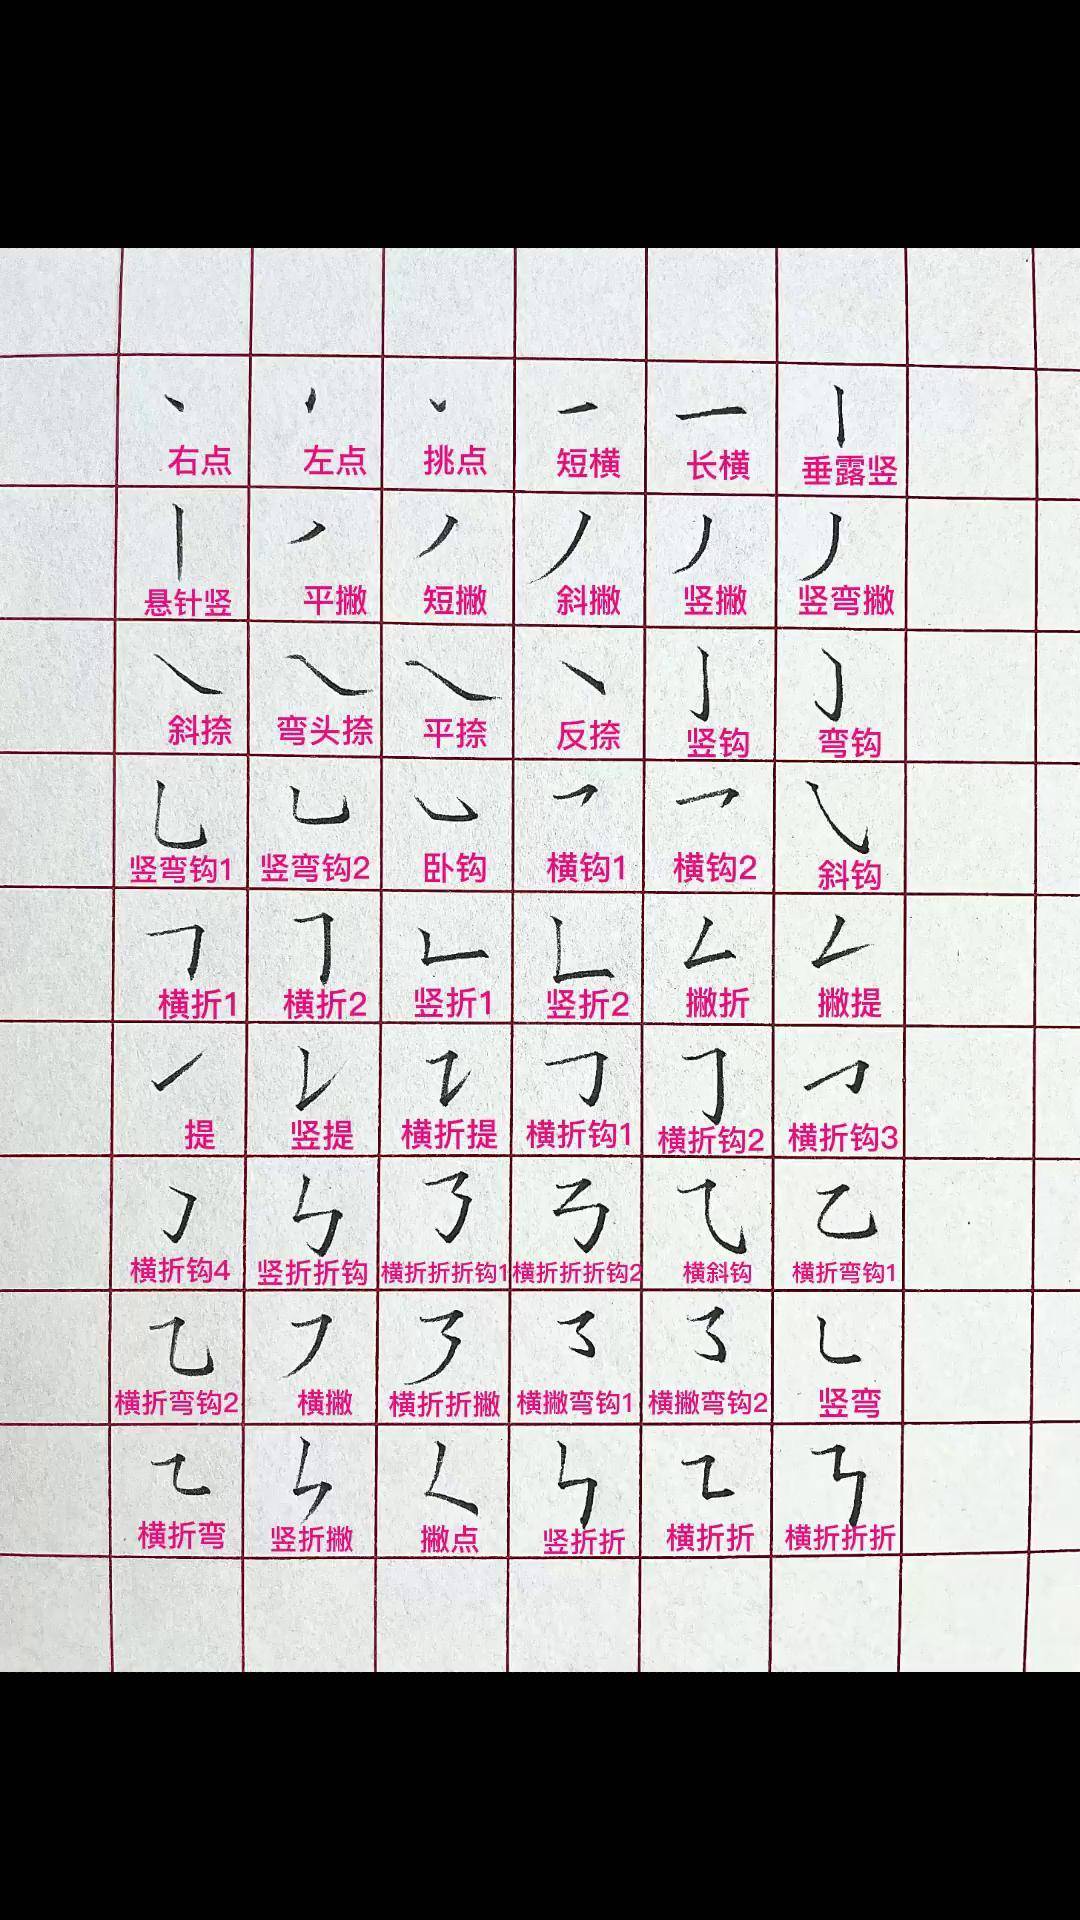 右点 左点 挑点 短横 长横 垂露竖
悬针竖 平撇 短撇 斜撇 竖撇 竖弯撇
斜捺 弯头捺 平捺 反捺 竖钩 弯钩
竖弯钩1 竖弯钩2 卧钩 横钩1 横钩2 斜钩
横折1 横折2 竖折1 竖折2 撇折 撇提
提 竖提 横折提 横折钩1 横折钩2 横折钩3
横折钩4 竖折折钩 横折折折钩1 横折折折钩2 横斜钩 横折弯钩1
横折弯钩2 横撇 横折折撇 横撇弯钩1 横撇弯钩2 竖弯
横折弯 竖折撇 撇点 竖折折 横折折 横折折折